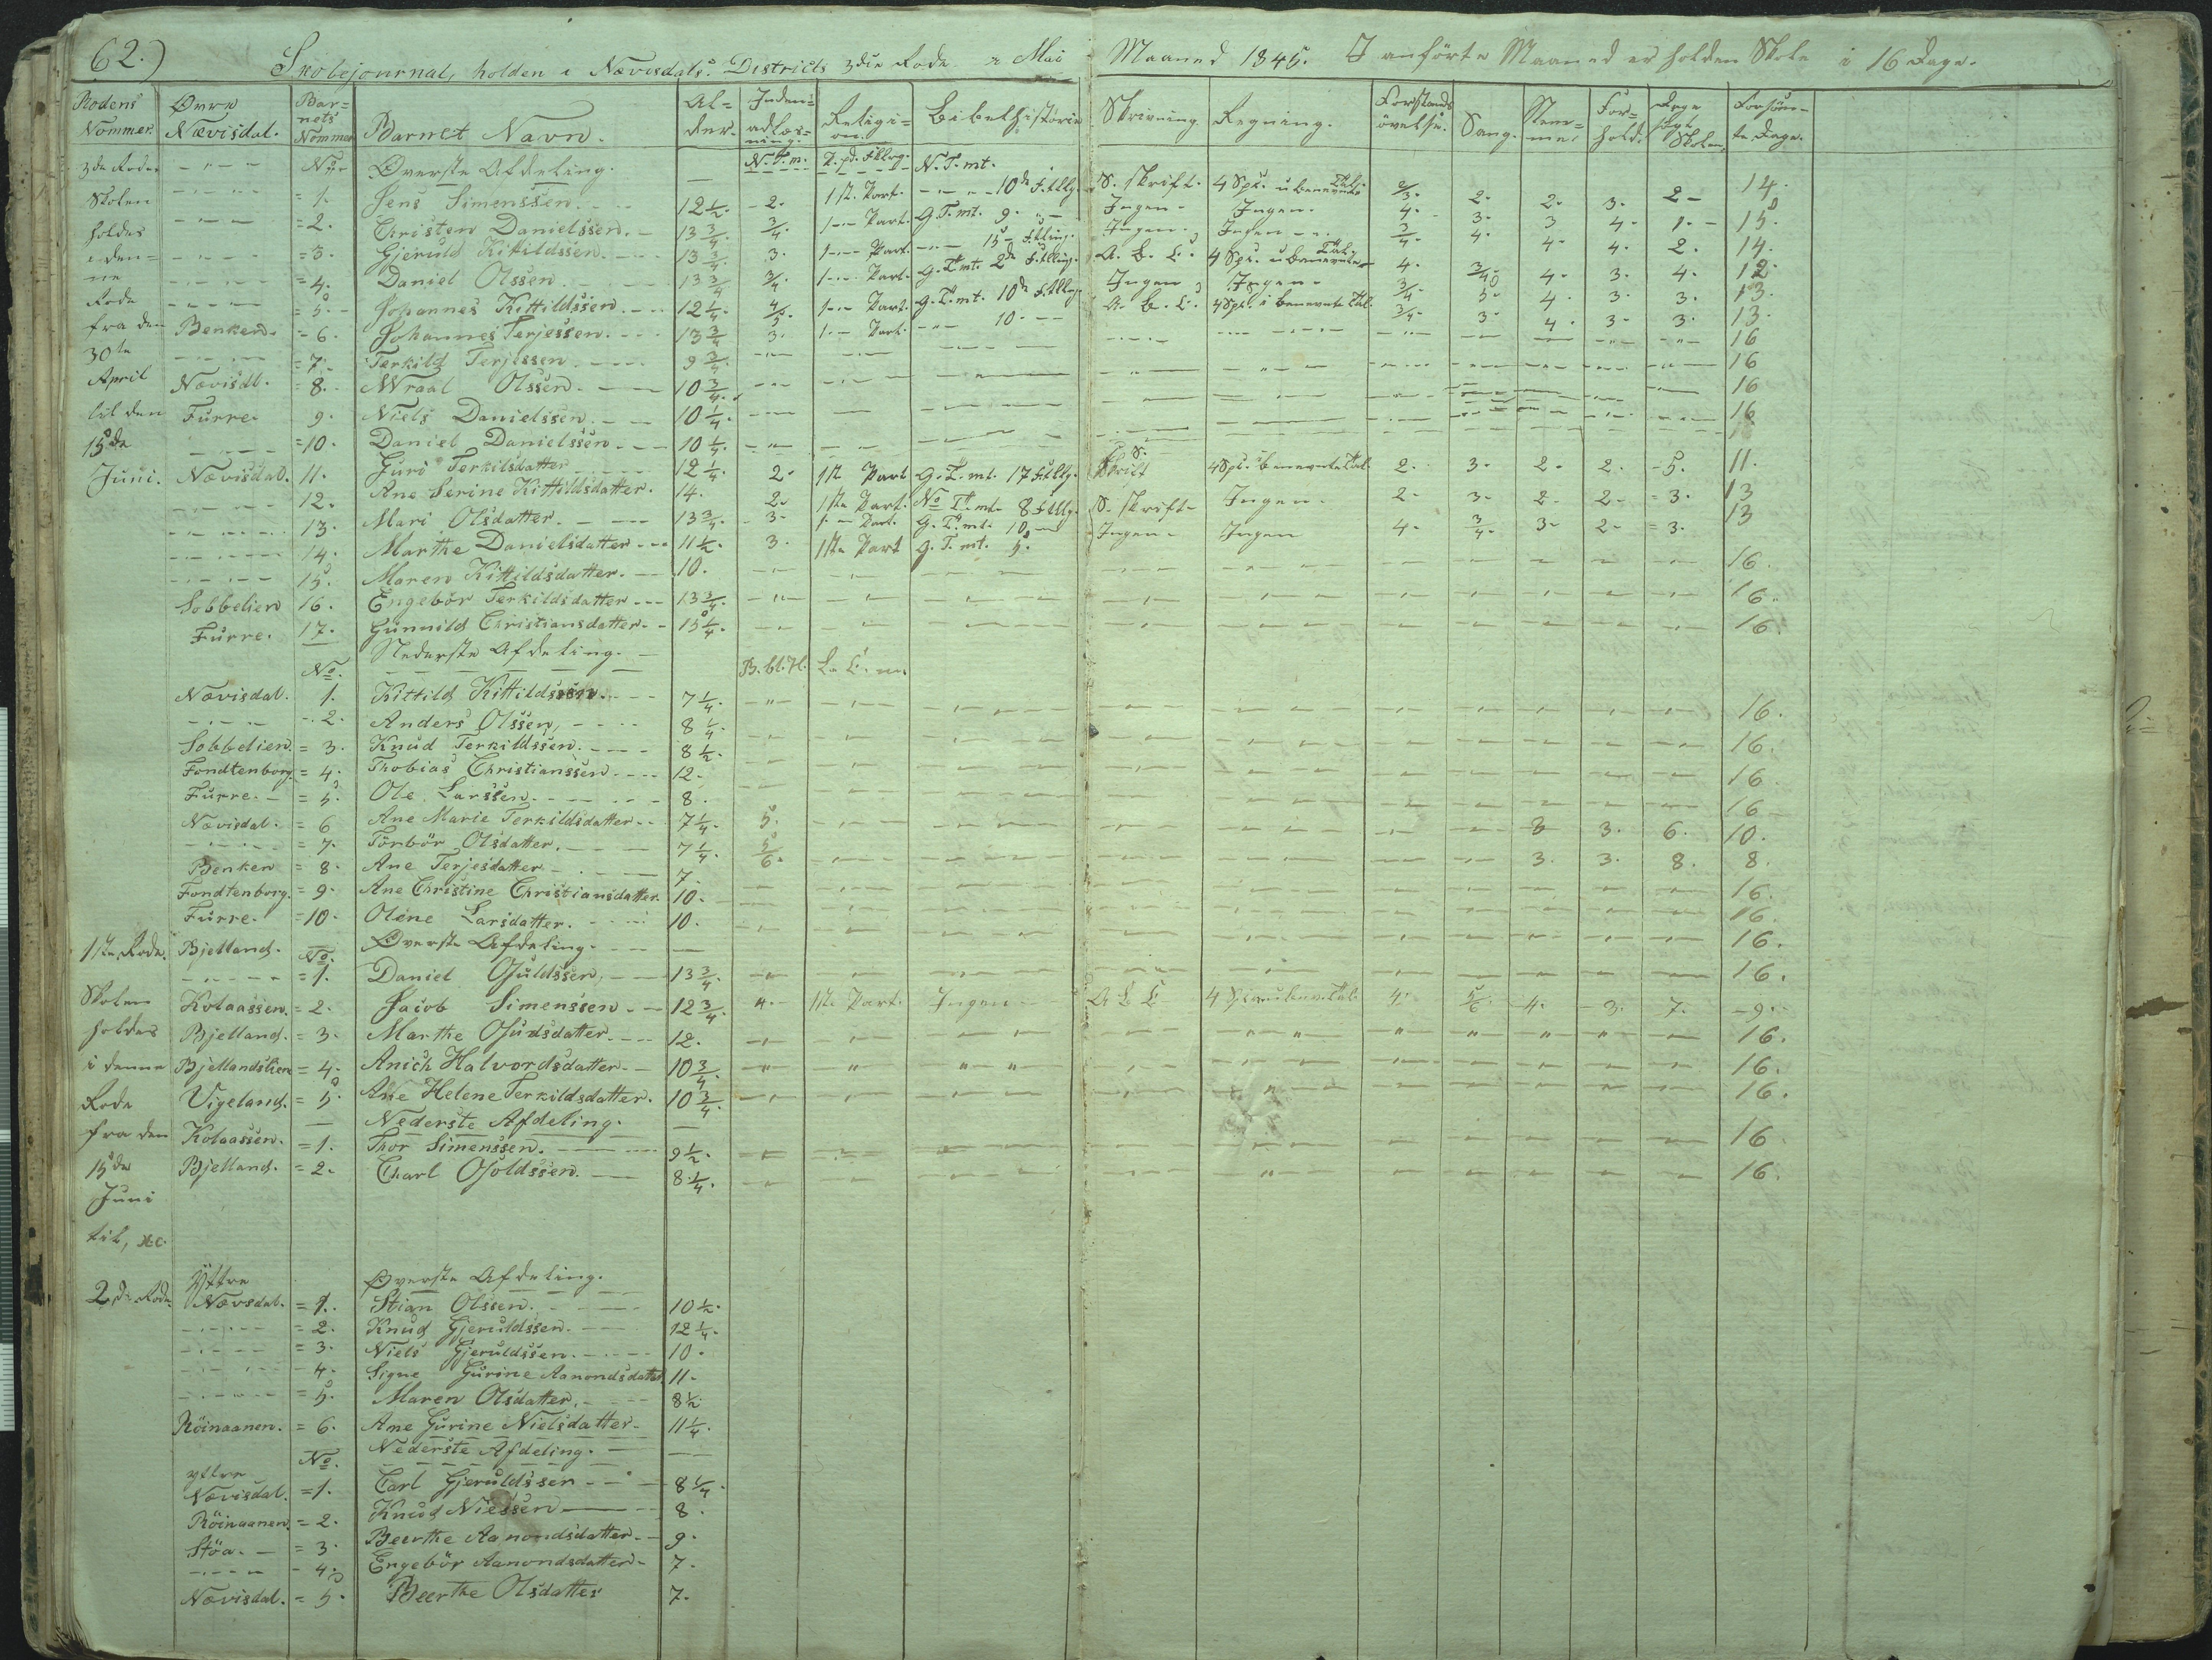 62.)
Skolejournal, holden i Nævisdals Districts 3die Rode i Mai Maaned 1845. I anførte Maaned er holden Skole i 16 Dage.
Rodens Nommer. Øvre Nævisdal. Barnets Nommer Barnets Navn. Alder. Indenadlæsning. Religion. Bibelhistorie Skrivning. Regning. Forstandsövelse. Sang. Stemme. Forhold. Dage søgt Skolen. Forsömte Dage.
3die Rode No. Øverste Afdeling. N. T. m. N. T. mt.
Skolen 1. Jens Simenssen. 12 1/2. 2. 1ste Part. 10de S. Skrift. 4 Spe. 2/3. 2. 2. 3. 2 14.
holdes 2. Christen Danielssen. 13 3/4. 3/4. Part. G. T. mt. 9. Ingen. Ingen. 4. 3. 3 4. 1. 15.
i den= 3. Gjeruld Kittildssen. 13 3/4. 3. Part. 15 Ingen. Ingen 3/4. 4. 4. 4. 2. 14.
ne 4. Daniel Olssen. 13 3/4 3/4. Part. G. T. mt. 2de A. B. C. 4 Spe. 4. 3/4. 4. 3. 4. 12.
Rode 5. Johannes Kittildssen. 12 1/4. 4/5. Part. G. T. mt. 10de Ingen Ingen. 3/4 5. 4. 3. 3. 13.
fra den Benken. 6. Johannes Terjessen. 13 3/4 3. Part. 10. A. B. C. 4 Spe. i benevnte Tal. 3/4. 3. 4. 3. 3. 13.
30te 7. Terkild Terjessen. 9 3/4. 16
April Nævisdl. 8. Wraal Olssen. 10 3/4. 16
til den Furre. 9. Niels Danielssen. 10 1/4. 16
15de 10. Daniel Danielssen 10 1/4. 16
Juni. Nævisdal. 11. Guri Terkilsdatter 12 1/4. 2. 1ste Part G. T. mt. 17 S. Skrift 4 Spe. i benevnte Tal. 2. 3. 2. 2. 5. 11.
12. Ane Serine Kittildsdatter. 14. 2. 1ste Part. N. T. mt. 8 S. Skrift. Ingen. 2. 3. 2. 2. 3. 13
13. Mari Olsdatter. 13 3/4. 3. Part. G. T. mt. 10 Ingen. Ingen 4. 3/4. 3. 2. 3. 13
14. Marthe Danielsdatter 11 1/2. 3. 1ste Part G. T. mt. 5.
15. Maren Kittildsdatter. 10. 16.
Sobbelien 16. Engebör Terkildsdatter 13 3/4. 16.
Furre. 17. Gunnild Christiansdatter. 15 1/4. 16.
No. Nederste Afdeling.
Nævisdal. 1. Kittild Kittildssen. 7 1/4. 16.
2. Anders Olssen, 8 1/4 16.
Sobbelien. 3. Knud Terkildssen. 8 1/2. 16.
Fondtenborg. 4. Thobias Christianssen. 12. 16
Furre. 5. Ole Larssen. 8.
Nævisdal. 6 Ane Marie Terkildsdatter. 7 1/4. 5. 3 3. 6. 10.
7. Törbör Olsdatter. 7 1/4. 5/6. 3. 3. 8. 8.
Benken 8. Ane Terjesdatter 7 16.
Fondtenborg. 9. Ane Christine Christiansdatter. 10. 16.
Furre. 10. Olene Larsdatter. 10. 16.
1ste Rode. Bjelland. No. Øverste Afdeling.
1. Daniel 13 3/4. 16.
Skolen Kolaassen. 2. Jacob Simenssen 12 3/4. 4. 1ste Part. Ingen A B C 4. 5/6. 4. 3. 7. 9.
holdes Bjelland. 3. Marthe 12. 16.
i denne Bjellandslien 4. Anich Halvordsdatter 10 3/4. 16.
Rode Vigeland. 5. Ane Helene Terkildsdatter. 10 3/4. 16.
fra den Nederste Afdeling.
Kolaassen. 1. Thor Simenssen. 9 1/2. 16.
15de Bjelland. 2. Charl 8 1/4. 16.
Juni
til, &c.
Yttre Øverste Afdeling.
2den Rode. Nævsdal. 1. Stian Olssen. 10 1/2.
2. Knud Gjeruldssen. 12 1/4.
3. Niels Gjeruldssen. 10.
4. Signe Gurine Aanondsdatter. 11.
5. Maren Olsdatter. 8 1/2
Röinaanen. 6. Ane Gurine Nielsdatter 11 1/4.
No. Nederste Afdeling.
yttre
Nævisdal. 1. Carl Gjeruldssen 8 1/4.
Röinaanen. 2. Knud Nielssen 8.
Stöa. 3. Beerthe Aanondsdatter. 9.
4. Engebör Aanondsdatter 7.
Nævisdal. 5. Beerthe Olsdatter 7.